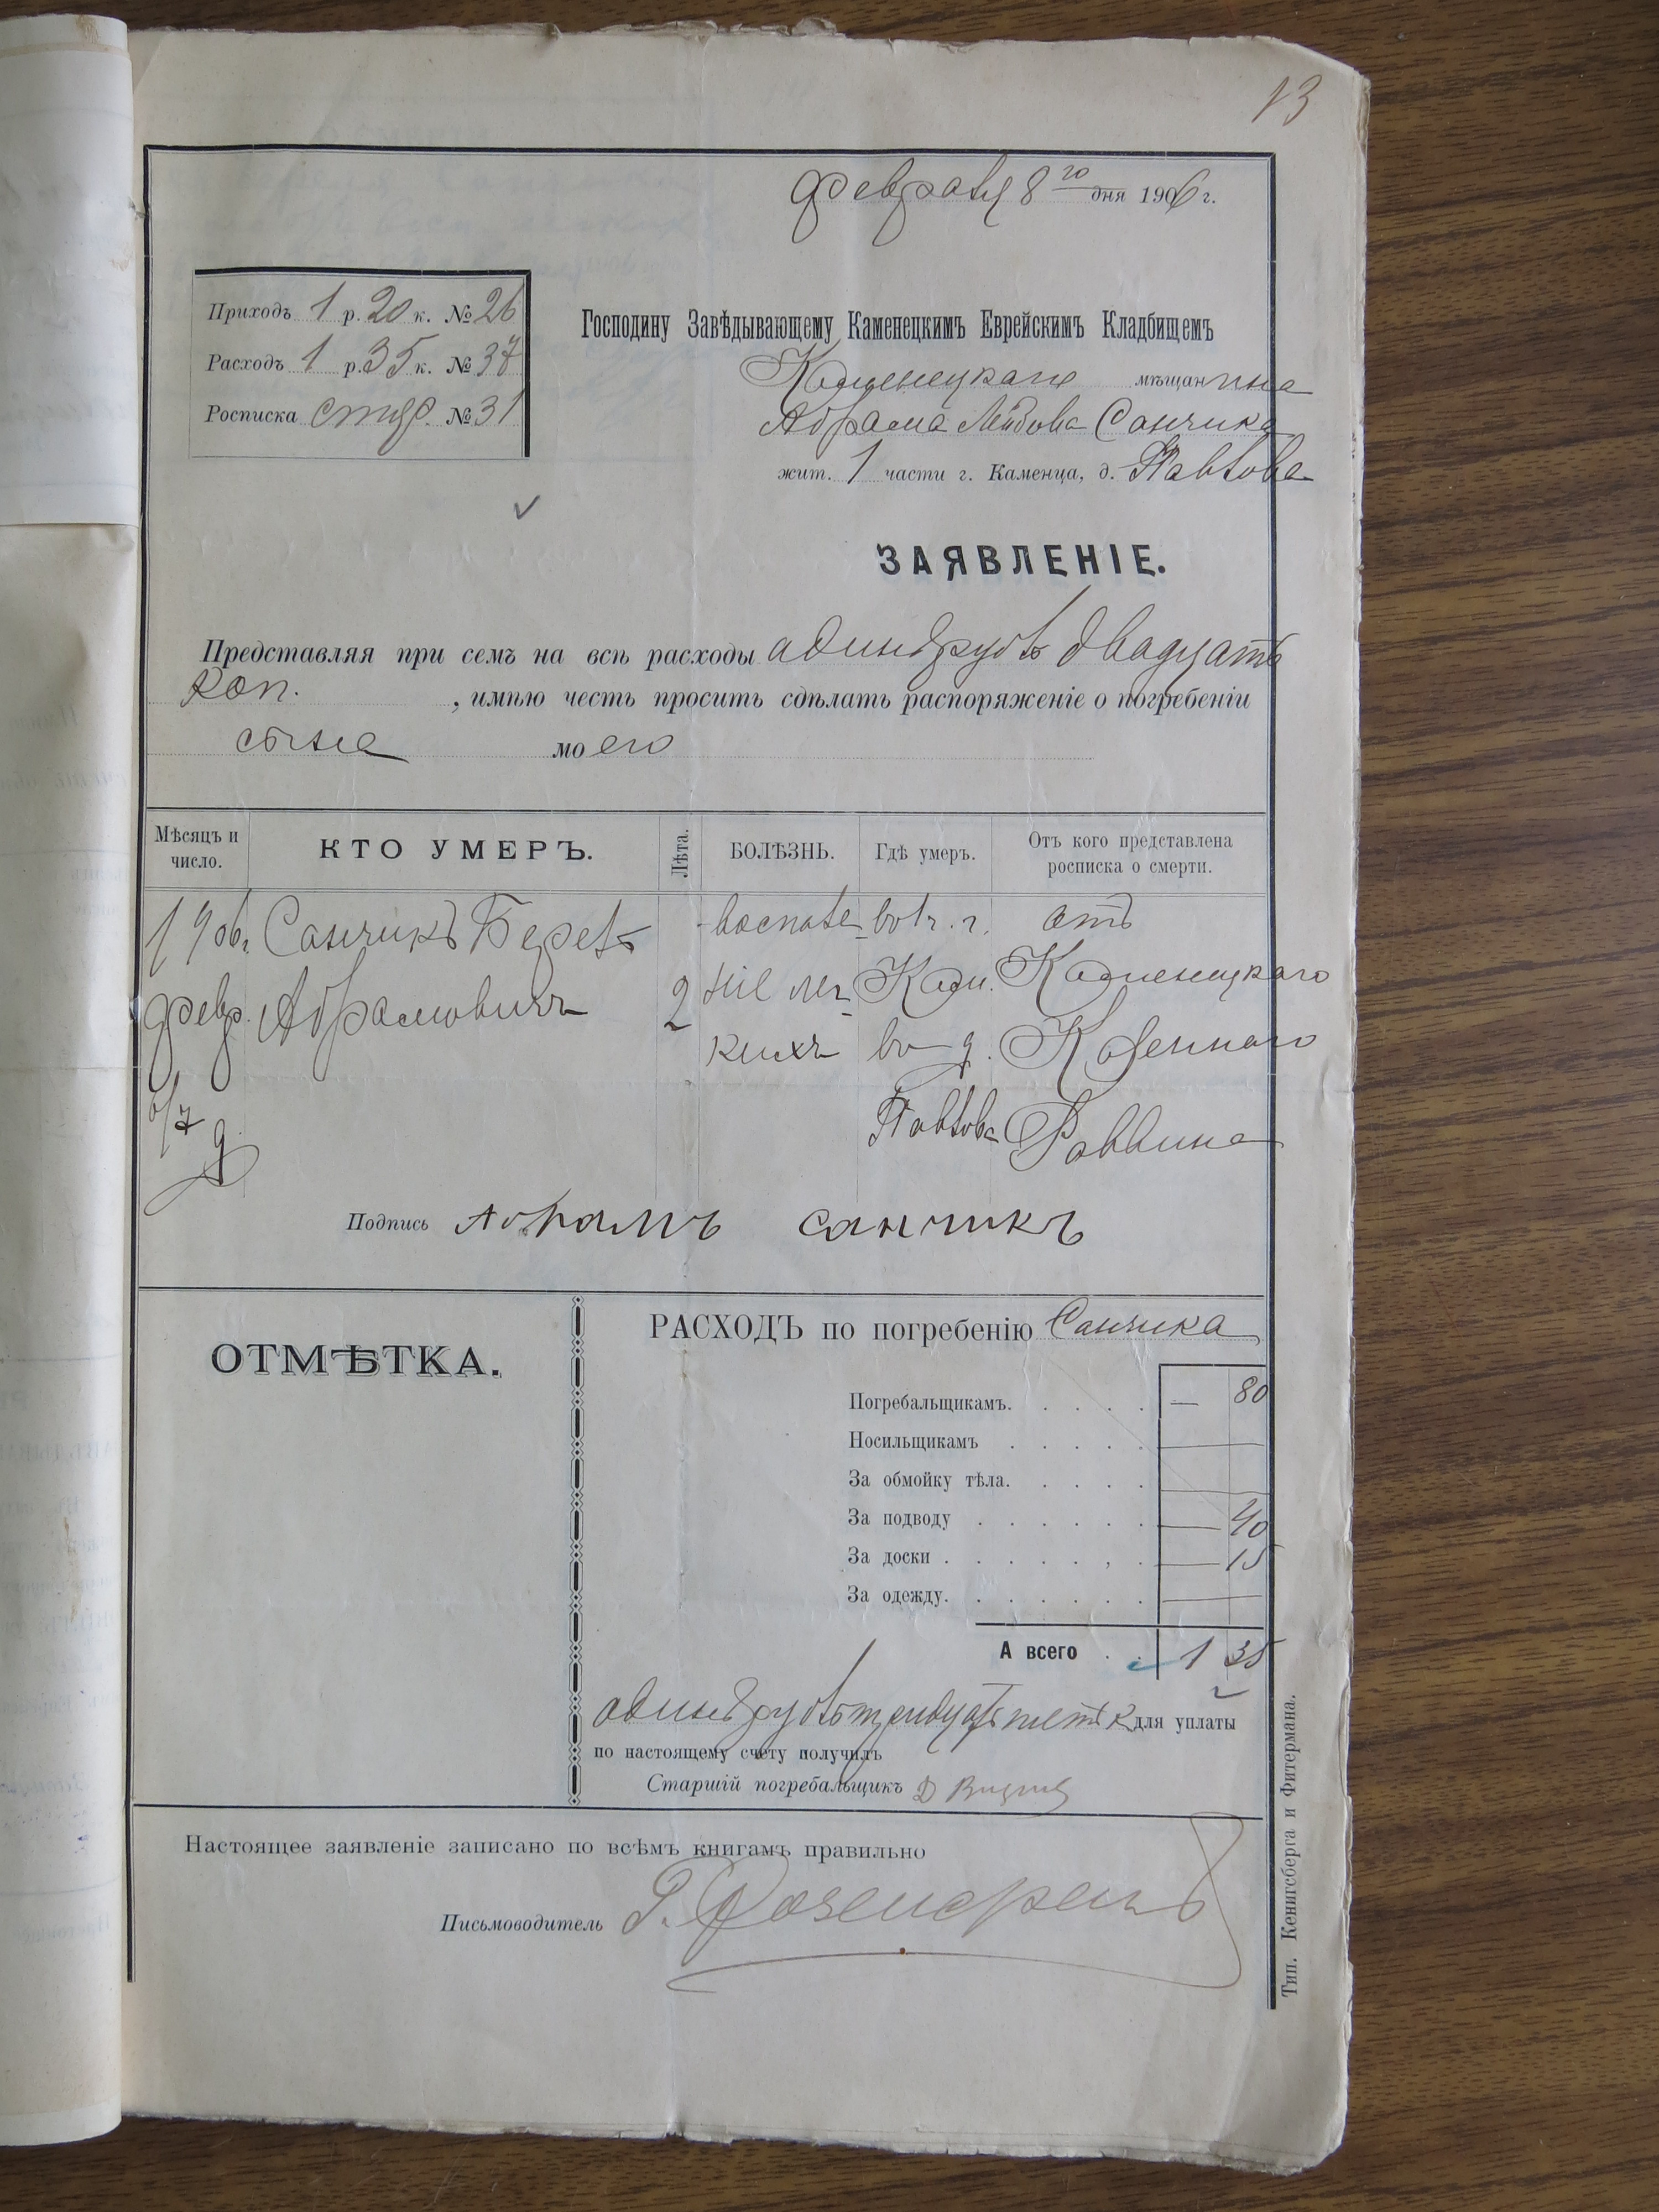 13
Февраля 8 го дня 1906 г.
Приходъ 1 р. 20 к. № 26
Расходъ 1 р. 35 к. № 37
Росписка № 31
Господину Завѣдывающему Каменецкимъ Еврейскимъ Кладбищемъ
Каменецкаго мѣщанина
Абрама Лейбова Санчика
жит. 1 части г. Каменца, д. Павлова
ЗАЯВЛЕНІЕ.
Представляя при семъ на всѣ расходы адинъ рубль двадцать
коп. , имѣю честь просить сдѣлать распоряженіе о погребеніи
сына моего
Мѣсяцъ и число. КТО УМЕРЪ. Лѣта. БОЛѢЗНЬ. Гдѣ умеръ. Отъ кого представлена росписка о смерти.
1906 г. Санчикъ Берель воспале въ г. отъ
февр. Абрамовичъ 2 ніе лег Кам. Каменецкаго
кихъ въ д. Казеннаго
6/7 Павлова Раввина
Подпись Абрамъ санчикъ
ОТМѢТКА.
РАСХОДЪ по погребенію Санчика
Погребальщикамъ. — 80
Носильщикамъ —
За обмойку тѣла. —
За подводу — 40
За доски — 15
За одежду. —
А всего 1 35
адинъ рубль тридцать пять к для уплаты
по настоящему счету получилъ
Старшій погребальщикъ Д
Настоящее заявленіе записано по всѣмъ книгамъ правильно
Письмоводитель
Тип. Кенигсберга и Фитермана.